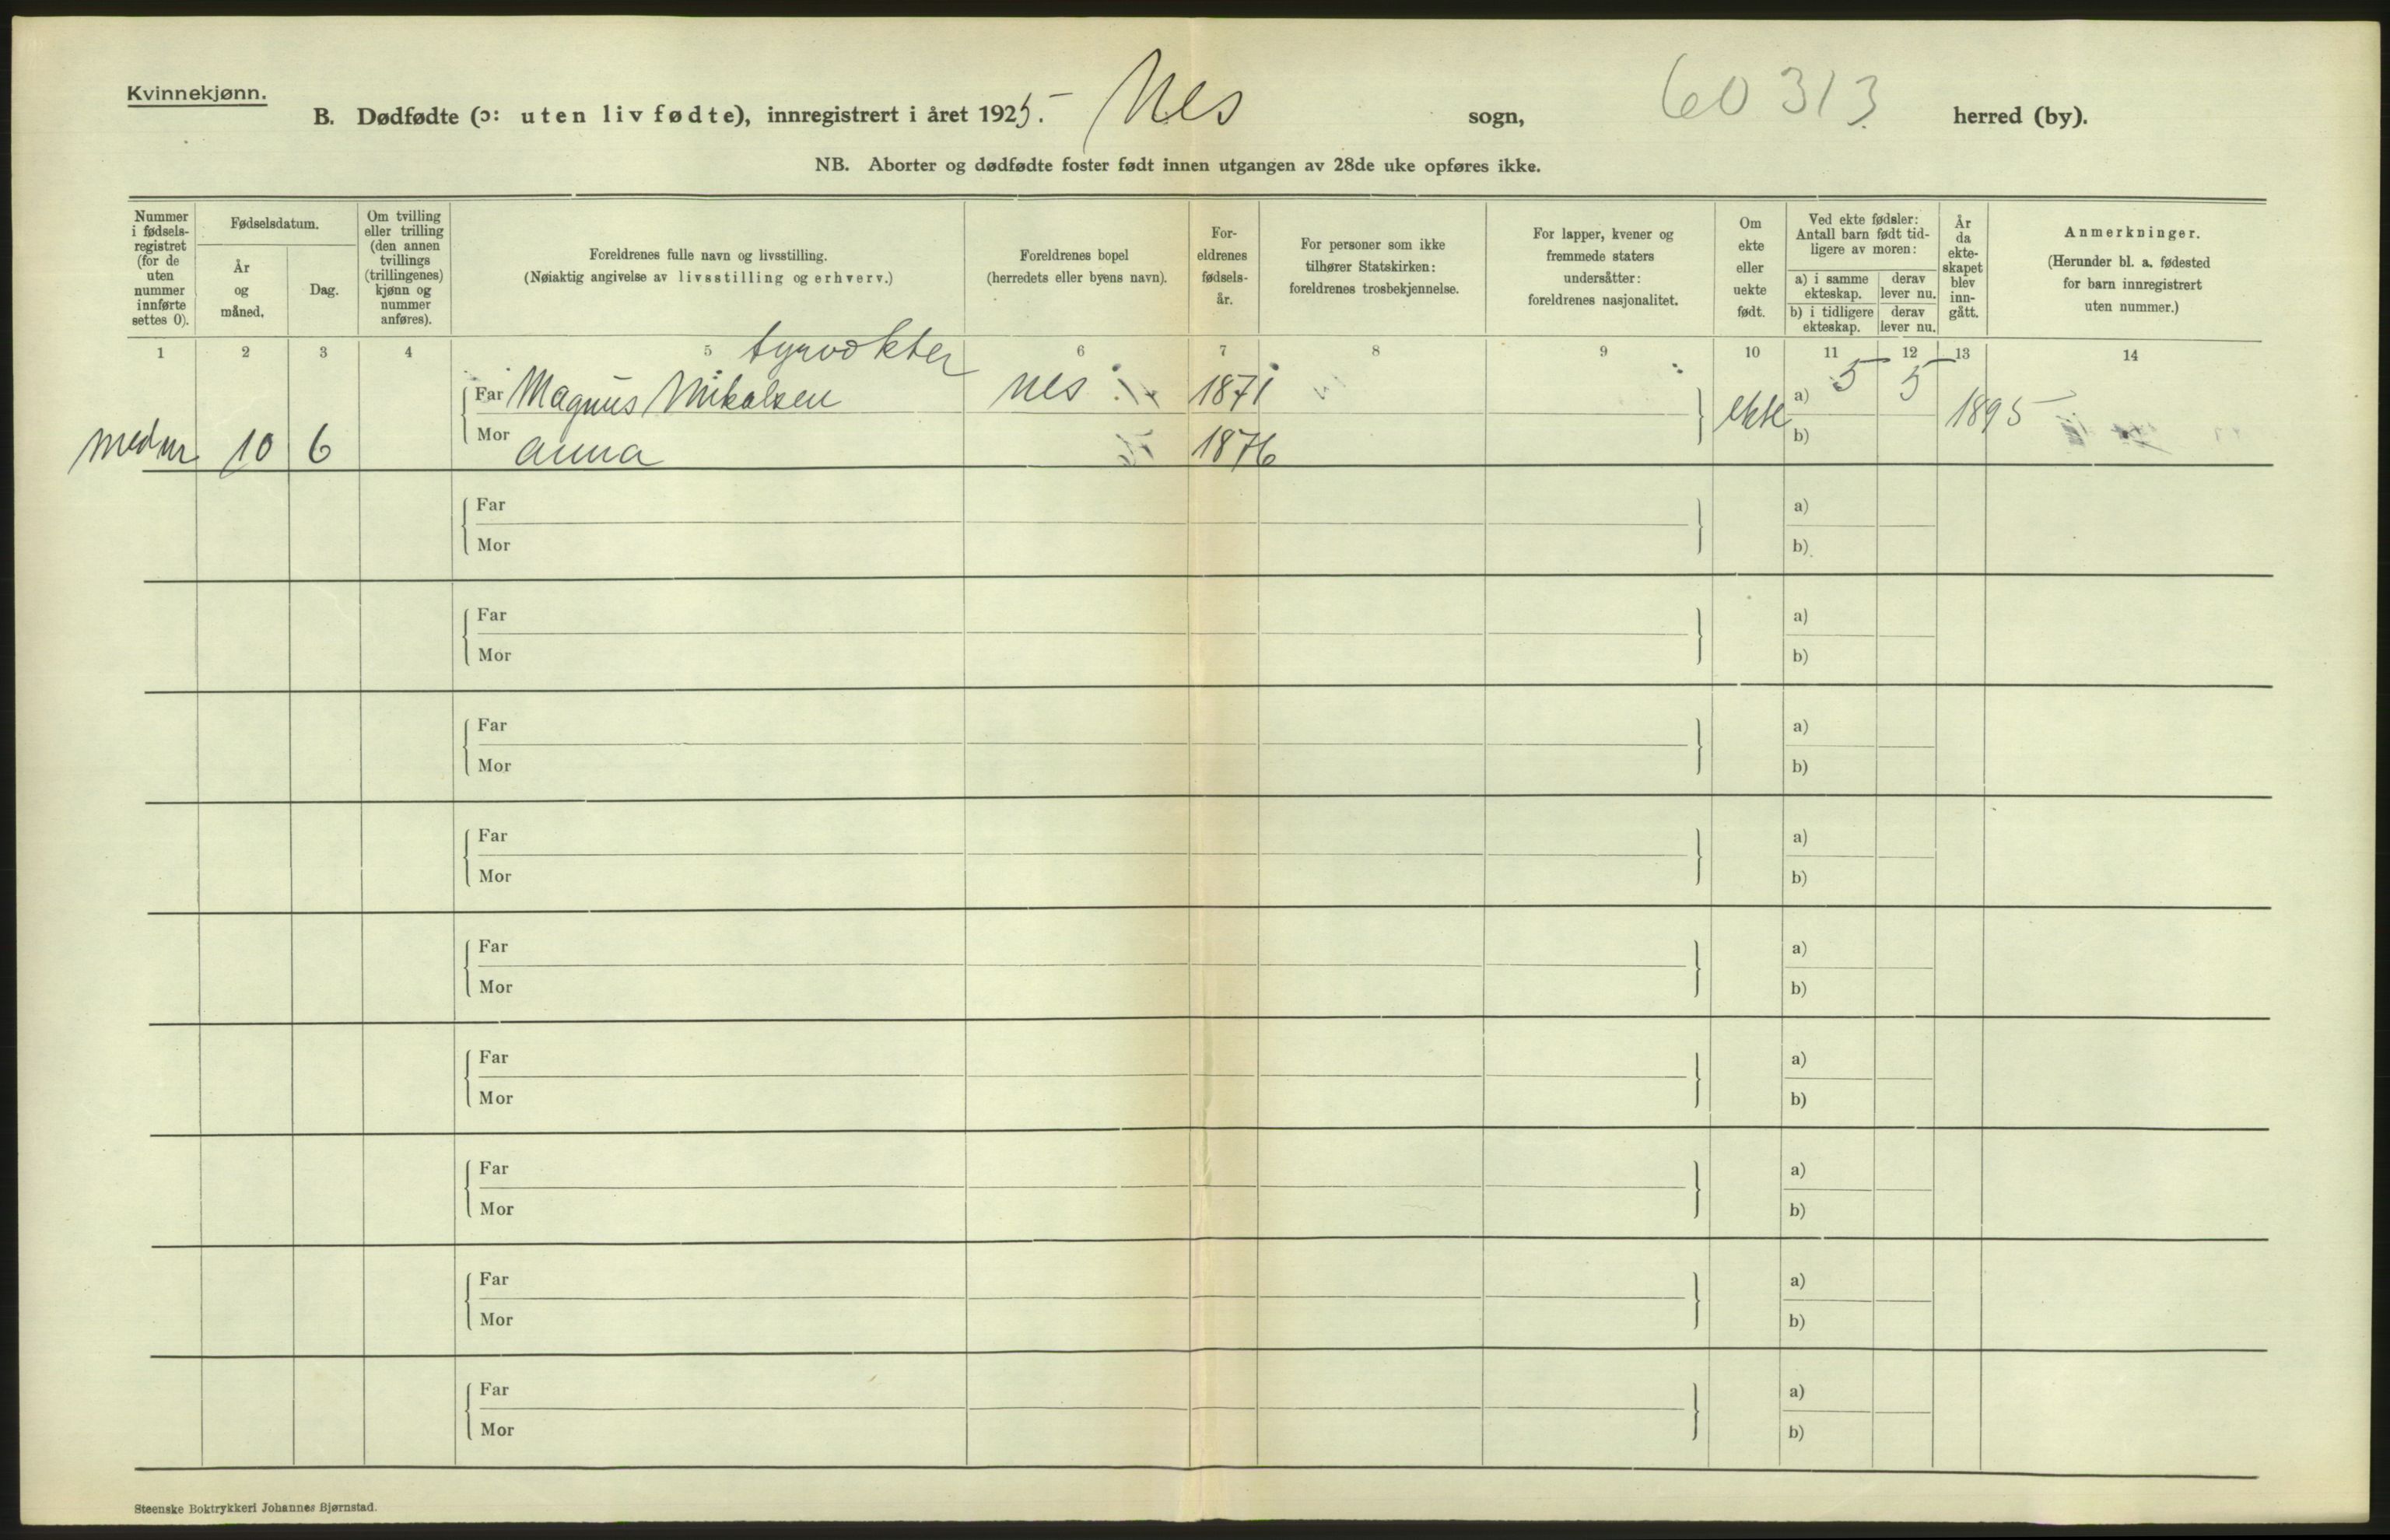 Kvinnekjønn.
B. Dødfødte (ɔ: uten liv fødte), innregistrert i året 1925. Nes sogn, 60 313 herred (by).
NB. Aborter og dødfødte foster født innen utgangen av 28de uke opføres ikke.
Nummer i fødsels-registret (for de uten nummer innførte settes 0).
Fødselsdatum.
År og måned.
Dag.
Om tvilling eller trilling (den annen tvillings (trillingenes) kjønn og nummer anføres).
Foreldrenes fulle navn og livsstilling.
(Nøiaktig angivelse av livsstilling og erhverv.)
Foreldrenes bopel
(herredets eller byens navn).
For-eldrenes fødsels-år.
For personer som ikke tilhører Statskirken: foreldrenes trosbekjennelse.
For lapper, kvener og fremmede staters undersåtter: foreldrenes nasjonalitet.
Om ekte eller uekte født.
Ved ekte fødsler: Antall barn født tid-ligere av moren:
a) i samme ekteskap.
derav lever nu.
b) i tidligere ekteskap.
derav lever nu.
År da ekte-skapet blev inn-gått.
Anmerkninger.
(Herunder bl. a. fødested for barn innregistrert uten nummer.)
1 2 3 4 5 6 7 8 9 10 11 12 13 14
fyrvokter
Far Magnus Mikalsen Nes 1871 ekte a) 5 5 1895
med nr 10 6 Mor Anna 1876 b)
Far a)
Mor b)
Far a)
Mor b)
Far a)
Mor b)
Far a)
Mor b)
Far a)
Mor b)
Far a)
Mor b)
Far a)
Mor b)
Far a)
Mor b)
Far a)
Mor b)
Steenske Boktrykkeri Johannes Bjørnstad.